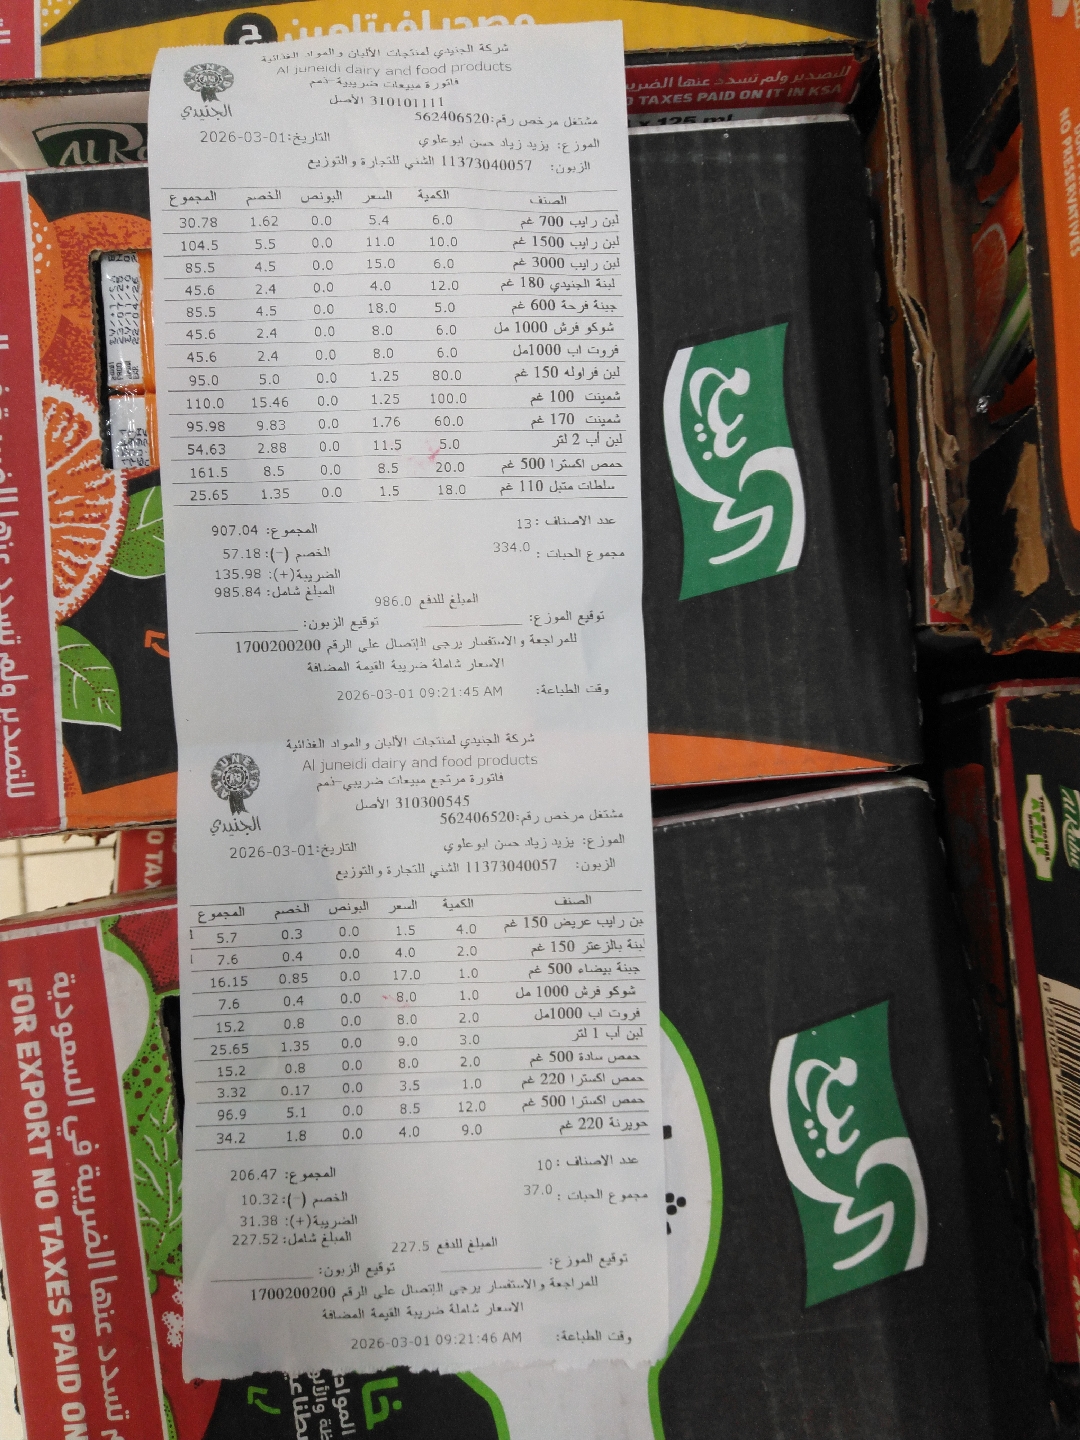 شركة الجنيدي لمنتجات الألبان والمواد الغذائية
Al juneidi dairy and food products
فاتورة مبيعات ضريبية-ذمم
310101111 الأصل
الجنيدي
مشتغل مرخص رقم:562406520
الموزع: يزيد زياد حسن ابوعلوي
التاريخ:2026-03-01
الزبون: 11373040057 الشني للتجارة والتوزيع
الصنف الكمية السعر البونص الخصم المجموع
لبن رايب 700 غم 6.0 5.4 0.0 1.62 30.78
لبن رايب 1500 غم 10.0 11.0 0.0 5.5 104.5
لبن رايب 3000 غم 6.0 15.0 0.0 4.5 85.5
لبنة الجنيدي 180 غم 12.0 4.0 0.0 2.4 45.6
جبنة فرحة 600 غم 5.0 18.0 0.0 4.5 85.5
شوكو فرش 1000 مل 6.0 8.0 0.0 2.4 45.6
فروت اب 1000مل 6.0 8.0 0.0 2.4 45.6
لبن فراوله 150 غم 80.0 1.25 0.0 5.0 95.0
شمينت 100 غم 100.0 1.25 0.0 15.46 110.0
شمينت 170 غم 60.0 1.76 0.0 9.83 95.98
لبن أب 2 لتر 5.0 11.5 0.0 2.88 54.63
حمص اكسترا 500 غم 20.0 8.5 0.0 8.5 161.5
سلطات متبل 110 غم 18.0 1.5 0.0 1.35 25.65
عدد الاصناف : 13
المجموع: 907.04
مجموع الحبات : 334.0
الخصم (-): 57.18
الضريبة(+): 135.98
المبلغ شامل: 985.84
المبلغ للدفع 986.0
توقيع الموزع: توقيع الزبون:
للمراجعة والاستفسار يرجى الإتصال على الرقم 1700200200
الاسعار شاملة ضريبة القيمة المضافة
وقت الطباعة: 2026-03-01 09:21:45 AM
شركة الجنيدي لمنتجات الألبان والمواد الغذائية
Al juneidi dairy and food products
فاتورة مرتجع مبيعات ضريبي-ذمم
310300545 الأصل
الجنيدي
مشتغل مرخص رقم:562406520
الموزع: يزيد زياد حسن ابوعلوي
التاريخ:2026-03-01
الزبون: 11373040057 الشني للتجارة والتوزيع
الصنف الكمية السعر البونص الخصم المجموع
بن رايب عريض 150 غم 4.0 1.5 0.0 0.3 5.7
بنة بالزعتر 150 غم 2.0 4.0 0.0 0.4 7.6
جبنة بيضاء 500 غم 1.0 17.0 0.0 0.85 16.15
شوكو فرش 1000 مل 1.0 8.0 0.0 0.4 7.6
فروت اب 1000مل 2.0 8.0 0.0 0.8 15.2
لبن أب 1 لتر 3.0 9.0 0.0 1.35 25.65
حمص سادة 500 غم 2.0 8.0 0.0 0.8 15.2
حمص اكسترا 220 غم 1.0 3.5 0.0 0.17 3.32
حمص اكسترا 500 غم 12.0 8.5 0.0 5.1 96.9
حويرنة 220 غم 9.0 4.0 0.0 1.8 34.2
عدد الاصناف : 10
المجموع: 206.47
مجموع الحبات : 37.0
الخصم (-): 10.32
الضريبة(+): 31.38
المبلغ شامل: 227.52
المبلغ للدفع 227.5
توقيع الموزع: توقيع الزبون:
للمراجعة والاستفسار يرجى الإتصال على الرقم 1700200200
الاسعار شاملة ضريبة القيمة المضافة
وقت الطباعة: 2026-03-01 09:21:46 AM
الربيع
الربيع
FOR EXPORT NO TAXES PAID ON
للتصدير ولم تسدد عنها الضريبة
TAXES PAID ON IT IN KSA
x 125 ml
تسدد عنها الضريبة في السعودية
NO PRESERVATIVES